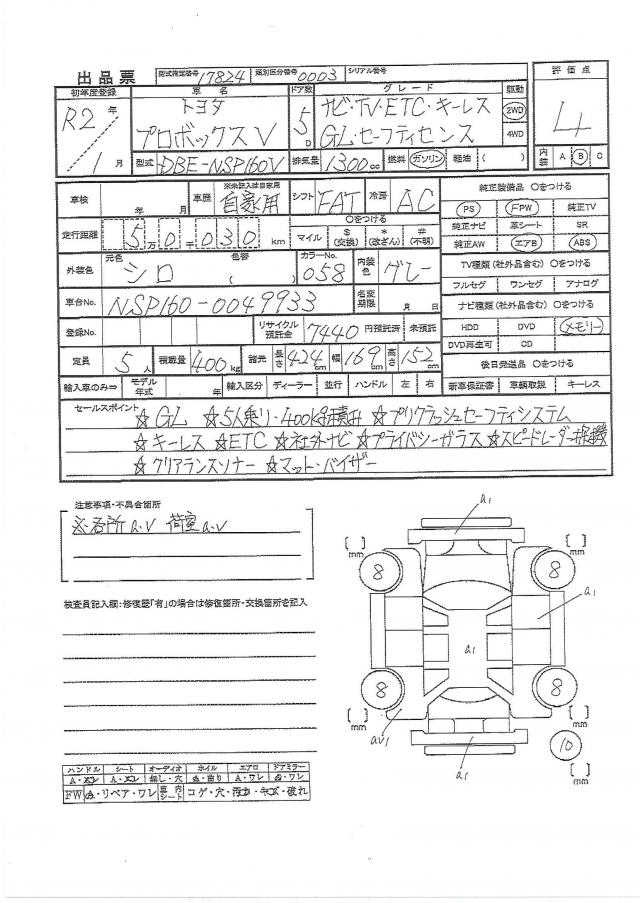 出品票 型式指定番号 17824 類別区分番号 0003 シリアル番号
初年度登録 車名 ドア数 グレード 駆動 評価点
R2年 トヨタ 5D ナビ・TV・ETC・キーレス 2WD 4
プロボックスV GL セーフティセンス 4WD
1月 型式 DBE-NSP160V 排気量 1300cc 燃料 ガソリン・軽油( ) 内装 A B C
車検 年 月 車歴 ※未記入は自家用 自家用 シフト FAT 冷房 AC 純正装備品 〇をつける
PS PW 純正TV
走行距離 5万0千030km 〇をつける 純正ナビ 革シート SR
マイル $(交換) *(改ざん) #(不明) 純正AW エアB ABS
外装色 元色 シロ 色替 ( ) カラーNo. 058 内装色 グレー TV種類(社外品含む) 〇をつける
フルセグ ワンセグ アナログ
車台No. NSP160-0049933 名変期限 月 日 ナビ種類(社外品含む) 〇をつける
登録No. リサイクル預託金 7440円預託済 未預託 HDD DVD メモリー
DVD再生可 CD
定員 5人 積載量 400kg 諸元 長さ 424cm 幅 169cm 高さ 152cm 後日発送品 〇をつける
輸入車のみ⇒ モデル年式 年 輸入区分 ディーラー 並行 ハンドル 左 右 新車保証書 車輌取説 キーレス
セールスポイント ☆GL ☆5人乗り・400kg積み ☆プリクラッシュセーフティシステム
☆キーレス ☆ETC ☆社外ナビ ☆プライバシーガラス ☆スピードレーダー探機
☆クリアランスソナー ☆マット・バイザー
注意事項・不具合箇所
※各所a.v 荷室a.v
検査員記入欄:修復歴「有」の場合は修復箇所・交換箇所を記入
a1
[ ] mm [ ] mm
8 8
a1
a1
8 8
[ ] mm [ ] mm
av1
a1
10
[ ] mm
ハンドル シート オーディオ ホイル エアロ ドアミラー
A・スレ A・スレ 無し・穴 A・曲り A・ワレ A・ワレ
FW A・リペア・ワレ 車内シート コゲ・穴・汚れ・キズ・破れ